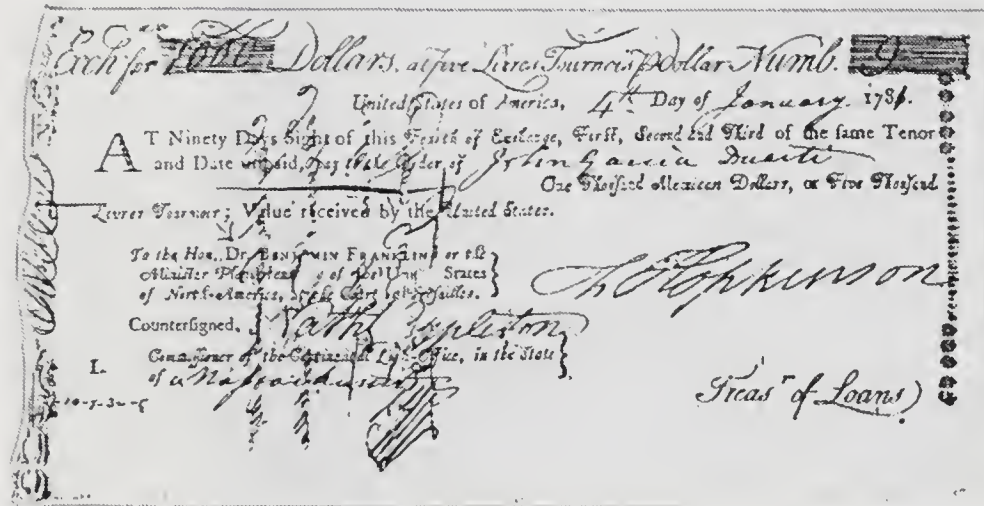 Exch for 1000 Dollars, at five Livres Tournois p Dollar Numb. 9
United States of America, 4th Day of January 1781.
AT Ninety Days Sight of this Fourth of Exchange, First, Second and Third of the same Tenor
and Date unpaid, pay to the Order of John Garcia Duarti
One Thousand Mexican Dollars, or Five Thousand
Livres Tournois; Value received by the United States.
To the Hon. Dr. BENJAMIN FRANKLIN or the
Minister Plenipotentiary of the United States
of North-America, at the Court of Versailles.
Hopkinson
Countersigned, Nathl Appleton
Commissioner of the Continental Loan-Office, in the State
L.
of Massachusetts
Treasr of Loans